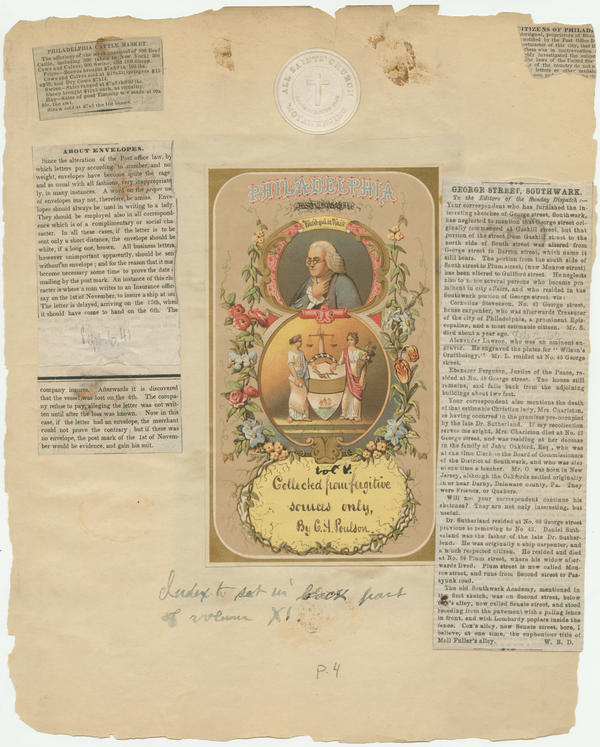 PHILADELPHIA CATTLE MARKET
The offerings of the week consisted of 900 Beef
Cattle, including 300 taken to New York; 300
Cows and Calves; 900 Swine, and
Straw sold at
ALL SAINTS' CHURCH
MOYAMENSING
CITIZENS OF PHILAD
notified by the Post Office D
ABOUT ENVELOPES.
Since the alteration of the Post office law, by
which letters pay according to number, and no
weight, envelopes have become quite the rage
and as usual with all fashions, very inappropriate
ly, in many instances. A word on the proper use
of envelopes may not, therefore, be amiss. Enve
lopes should always be used in writing to a lady.
They should be employed also in all correspond-
ence which is of a complimentary or social cha-
racter. In all these cases, if the letter is to be
sent only a short distance, the envelope should be
white, if a long one, brown. All business letters,
however unimportant apparently, should be sent
without an envelope; and for the reason that it may
become necessary some time to prove the date of
mailing by the post mark. An instance of this cha-
racter is where a man writes to an Insurance office
say on the 1st of November, to insure a ship at sea
The letter is delayed, arriving on the 10th, when
it should have come to hand on the 6th. The
company insures. Afterwards it is discovered
that the vessel was lost on the 4th. The compa-
ny refuse to pay, alleging the letter was not writ-
ten until after the loss was known. Now in this
case, if the letter had an envelope, the merchant
could not prove the contrary; but if there was
no envelope, the post mark of the 1st of Novem-
ber would be evidence, and gain his suit.
PHILADELPHIA
vol V.
Collected from fugitive
sources only,
By C. A. Poulson.
GEORGE STREET, SOUTHWARK.
To the Editors of the Sunday Dispatch:—
Your correspondent who has furnished the in-
teresting sketches of George street, Southwark,
has neglected to mention that George street ori-
ginally commenced at Gaskill street, but that
portion of the street from Gaskill street to the
north side of South street was altered from
George street to Barron street, which name is
still bears. The portion from the south side of
South street to Plum street, (now Monroe street)
has been altered to Guilford street. He neglects
also to name several persons who became pro-
minent in city affairs, and who resided in the
Southwark portion of George street, viz:
Cornelius Stevenson, No. 47 George street,
house carpenter, who was afterwards Treasurer
of the city of Philadelphia, a prominent Epis-
copalian, and a most estimable citizen. Mr. S.
died about a year ago.
Alexander Lawson, who was an eminent en-
graver. He engraved the plates for "Wilson's
Ornithology." Mr. L. resided at No. 45 George
street.
Ebenezer Ferguson, Justice of the Peace, re-
sided at No. 49 George street. The house still
remains, and falls back from the adjoining
buildings about two feet.
Your correspondent also mentions the death
of that estimable Christian lady, Mrs. Charlston,
as having occurred in the premises pre-occupied
by the late Dr. Sutherland. If my recollection
serves me aright, Mrs. Charlston died at No. 47
George street, and was residing at her decease
in the family of John Oakford, Esq., who was
at one time Clerk to the Board of Commissioners
of the District of Southwark, and who was also
at one time a teacher. Mr. O. was born in New
Jersey, although the Oakfords settled originally
in or near Darby, Delaware county, Pa. They
were Friends, or Quakers.
Will not your correspondent continue his
sketches? They are not only interesting, but
useful.
Dr. Sutherland resided at No. 60 George street
previous to removing to No. 43. Daniel Suth-
erland was the father of the late Dr. Suther-
land. He was originally a ship carpenter, and
a much respected citizen. He resided and died
at No. 59 Plum street, where his widow after-
wards lived. Plum street is now called Mon-
roe street, and runs from Second street to Pas-
syunk road.
The old Southwark Academy, mentioned in
first sketch, was on Second street, below
Cox's alley, now called Senate street, and stood
receding from the pavement with a paling fence
in front, and with Lombardy poplars inside the
fence. Cox's alley, now Senate street, bore, I
believe, at one time, the euphonious title of
Moll Fuller's alley. W. S. D.
Index to set in back part
of volume XI.
P. 4